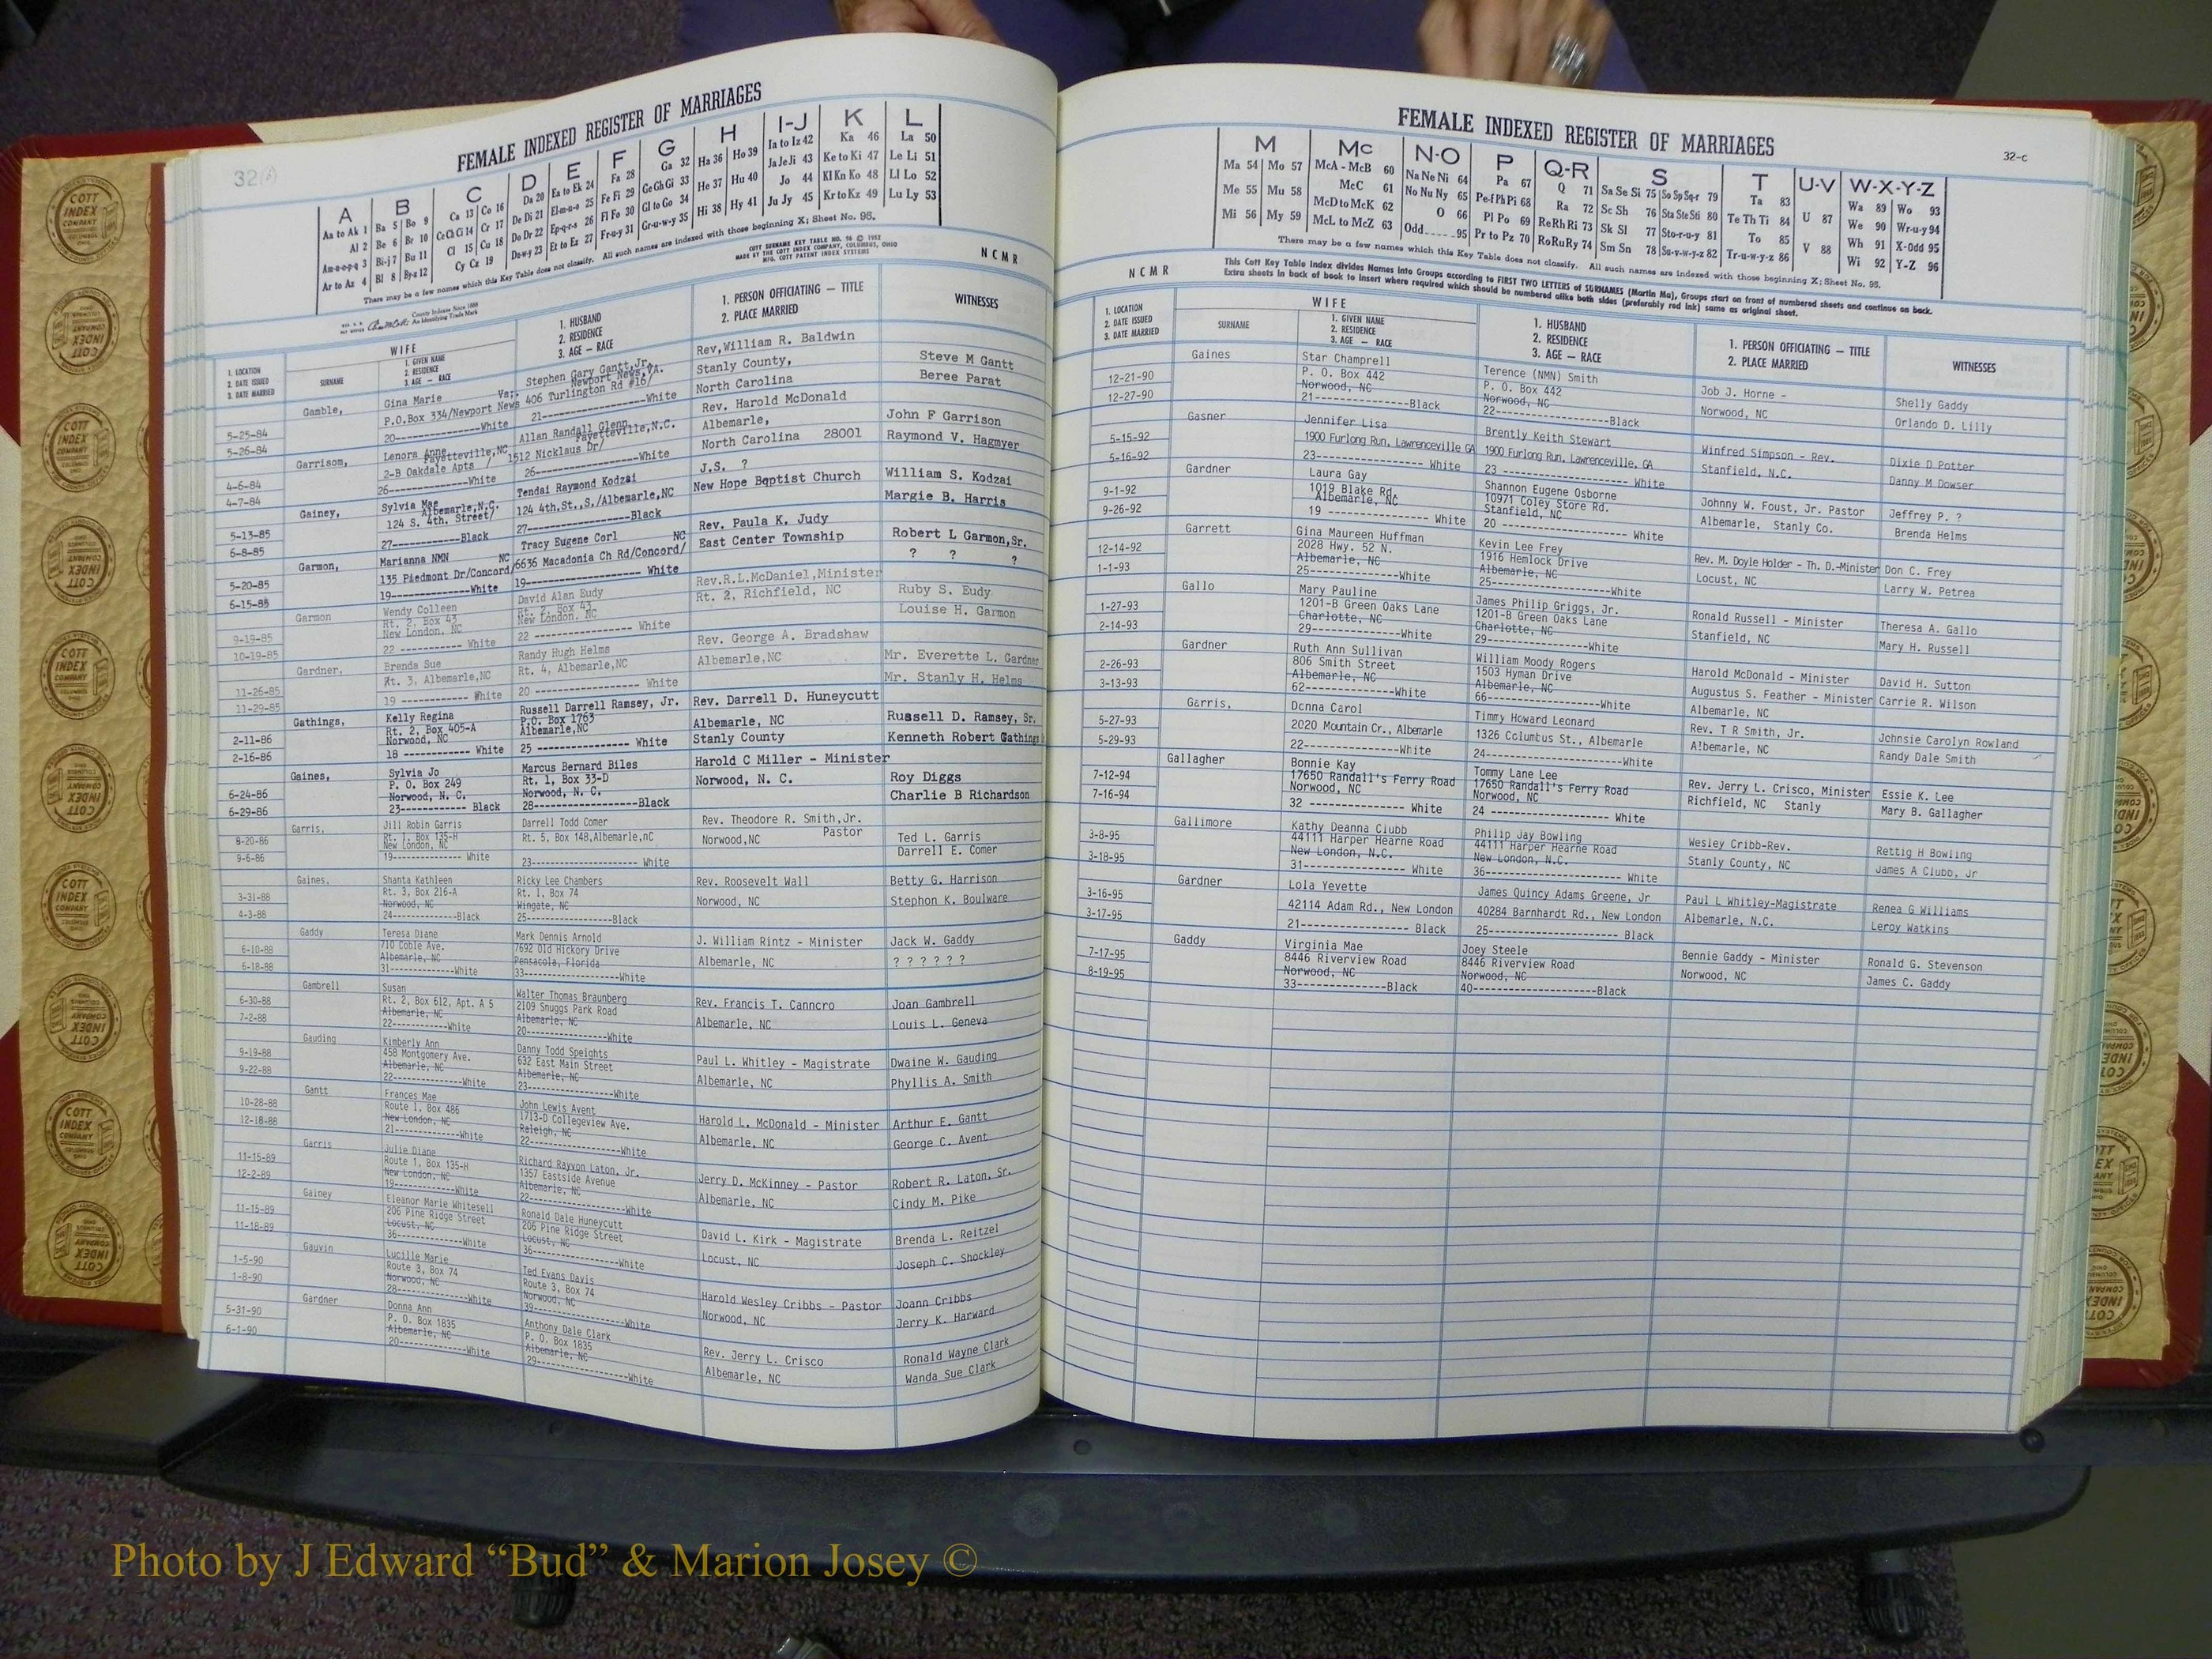 32(b)
FEMALE INDEXED REGISTER OF MARRIAGES
A B C D E F G H I-J K L
Aa to Ak 1 Ba 5 Bo 9 Ca 13 Co 16 Da 20 Ea to Ek 24 Fa 28 Ga 32 Ha 36 Ho 39 Ia to Iz 42 Ka 46 La 50
Al 2 Be 6 Br 10 Ce Ch Ci 14 Cr 17 De Di 21 El-m-n-o 25 Fe Fi 29 Ge Gh Gi 33 He 37 Hu 40 Ja Je Ji 43 Ke to Ki 47 Le Li 51
Am-n-o-p-q 3 Bi-j 7 Bu 11 Cl 15 Cu 18 Do Dr 22 Ep-q-r-s 26 Fl Fo 30 Gl to Go 34 Hi 38 Hy 41 Jo 44 Kl Kn Ko 48 Ll Lo 52
Ar to Az 4 Bl 8 By-z 12 Cy Cz 19 Du-w-y 23 Et to Ez 27 Fr-u-y 31 Gr-u-w-y 35 Ju Jy 45 Kr to Kz 49 Lu Ly 53
There may be a few names which this Key Table does not classify. All such names are indexed with those beginning X; Sheet No. 95.
COTT SURNAME KEY TABLE NO. 96 © 1952
MADE BY THE COTT INDEX COMPANY, COLUMBUS, OHIO
MFG. COTT PATENT INDEX SYSTEMS
NCMR
County Indexes Since 1888
An Identifying Trade Mark
1. LOCATION
2. DATE ISSUED
3. DATE MARRIED
WIFE
SURNAME
1. GIVEN NAME
2. RESIDENCE
3. AGE — RACE
1. HUSBAND
2. RESIDENCE
3. AGE — RACE
1. PERSON OFFICIATING — TITLE
2. PLACE MARRIED
WITNESSES
Gamble, Gina Marie Stephen Gary Gantt,Jr. Rev,William R. Baldwin Steve M Gantt
P.O.Box 334/Newport News Va. 406 Turlington Rd #16/ Newport News,VA. Stanly County, Beree Parat
5-25-84 20---White 21---White North Carolina
5-26-84
Garrisom, Lenora Anne Allan Randall Glenn Rev. Harold McDonald John F Garrison
2-B Oakdale Apts / Fayetteville,NC 1512 Nicklaus Dr/ Fayetteville,N.C. Albemarle, Raymond V. Hagmyer
4-6-84 26---White 26---White North Carolina 28001
4-7-84
Gainey, Sylvia Mae Tendai Raymond Kodzai J.S. ? William S. Kodzai
124 S. 4th. Street/ Albemarle,N.C. 124 4th.St.,S,/Albemarle,NC New Hope Baptist Church Margie B. Harris
5-13-85 27---Black 27---Black
6-8-85
Garmon, Marianna NMN Tracy Eugene Corl Rev. Paula K. Judy Robert L Garmon,Sr.
135 Piedmont Dr/Concord/ NC 6636 Macadonia Ch Rd/Concord/ NC East Center Township ? ? ?
5-20-85 19---White 19---White
6-15-85
Garmon Wendy Colleen David Alan Eudy Rev.R.L.McDaniel,Minister Ruby S. Eudy
Rt. 2, Box 43 Rt. 2, Box 43 Rt. 2, Richfield, NC Louise H. Garmon
New London, NC New London, NC
9-19-85 22 --- White 22 --- White
10-19-85
Gardner, Brenda Sue Randy Hugh Helms Rev. George A. Bradshaw Mr. Everette L. Gardner
Rt. 3, Albemarle,NC Rt. 4, Albemarle,NC Albemarle,NC Mr. Stanly H. Helms
11-26-85 19 --- White 20 --- White
11-29-85
Gathings, Kelly Regina Russell Darrell Ramsey, Jr. Rev. Darrell D. Huneycutt Russell D. Ramsey, Sr.
Rt. 2, Box 405-A P.O. Box 1763 Albemarle, NC Kenneth Robert Gathings
Norwood, NC Albemarle,NC Stanly County
2-11-86 18 --- White 25 --- White
2-16-86
Gaines, Sylvia Jo Marcus Bernard Biles Harold C Miller - Minister Roy Diggs
P. O. Box 249 Rt. 1, Box 33-D Norwood, N. C. Charlie B Richardson
Norwood, N. C. Norwood, N. C.
6-24-86 23--- Black 28---Black
6-29-86
Garris, Jill Robin Garris Darrell Todd Comer Rev. Theodore R. Smith,Jr. Pastor Ted L. Garris
Rt. 1, Box 135-H Rt. 5, Box 148,Albemarle,nC Norwood,NC Darrell E. Comer
New London, NC
8-20-86 19--- White 23--- White
9-6-86
Gaines, Shanta Kathleen Ricky Lee Chambers Rev. Roosevelt Wall Betty G. Harrison
Rt. 3, Box 216-A Rt. 1, Box 74 Norwood, NC Stephon K. Boulware
Norwood, NC Wingate, NC
3-31-88 24---Black 25---Black
4-3-88
Gaddy Teresa Diane Mark Dennis Arnold J. William Rintz - Minister Jack W. Gaddy
710 Coble Ave. 7692 Old Hickory Drive Albemarle, NC ? ? ? ? ? ?
Albemarle, NC Pensacola, Florida
6-10-88 31---White 33---White
6-18-88
Gambrell Susan Walter Thomas Braunberg Rev. Francis T. Canncro Joan Gambrell
Rt. 2, Box 612, Apt. A 5 2109 Snuggs Park Road Albemarle, NC Louis L. Geneva
Albemarle, NC Albemarle, NC
6-30-88 22---White 20---White
7-2-88
Gauding Kimberly Ann Danny Todd Speights Paul L. Whitley - Magistrate Dwaine W. Gauding
458 Montgomery Ave. 632 East Main Street Albemarle, NC Phyllis A. Smith
Albemarle, NC Albemarle, NC
9-19-88 22---White 23---White
9-22-88
Gantt Frances Mae John Lewis Avent Harold L. McDonald - Minister Arthur E. Gantt
Route 1, Box 486 1713-D Collegeview Ave. Albemarle, NC George C. Avent
New London, NC Raleigh, NC
10-28-88 21---White 22---White
12-18-88
Garris Julie Diane Richard Rayvon Laton, Jr. Jerry D. McKinney - Pastor Robert R. Laton, Sr.
Route 1, Box 135-H 1357 Eastside Avenue Albemarle, NC Cindy M. Pike
New London, NC Albemarle, NC
11-15-89 19---White 22---White
12-2-89
Gainey Eleanor Marie Whitesell Ronald Dale Huneycutt David L. Kirk - Magistrate Brenda L. Reitzel
206 Pine Ridge Street 206 Pine Ridge Street Locust, NC Joseph C. Shockley
Locust, NC Locust, NC
11-15-89 36---White 36---White
11-18-89
Gauvin Lucille Marie Ted Evans Davis Harold Wesley Cribbs - Pastor Joann Cribbs
Route 3, Box 74 Route 3, Box 74 Norwood, NC Jerry K. Harward
Norwood, NC Norwood, NC
1-5-90 28---White 39---White
1-8-90
Gardner Donna Ann Anthony Dale Clark Rev. Jerry L. Crisco Ronald Wayne Clark
P. O. Box 1835 P. O. Box 1835 Albemarle, NC Wanda Sue Clark
Albemarle, NC Albemarle, NC
5-31-90 20---White 29---White
6-1-90
FEMALE INDEXED REGISTER OF MARRIAGES
32-c
M Mc N-O P Q-R S T U-V W-X-Y-Z
Ma 54 Mo 57 McA - McB 60 Na Ne Ni 64 Pa 67 Q 71 Sa Se Si 75 So Sp Sq-r 79 Ta 83 U 87 Wa 89 Wo 93
Me 55 Mu 58 McC 61 No Nu Ny 65 Pe-f Ph Pi 68 Ra 72 Sc Sh 76 Sta Ste Sti 80 Te Th Ti 84 V 88 We 90 Wr-u-y 94
Mi 56 My 59 McD to McK 62 O 66 Pl Po 69 Re Rh Ri 73 Sk Sl 77 Sto-r-u-y 81 To 85 Wh 91 X-Odd 95
McL to McZ 63 Odd 95 Pr to Pz 70 Ro Ru Ry 74 Sm Sn 78 Su-v-w-y-z 82 Tr-u-w-y-z 86 Wi 92 Y-Z 96
There may be a few names which this Key Table does not classify. All such names are indexed with those beginning X; Sheet No. 95.
NCMR
This Cott Key Table Index divides Names into Groups according to FIRST TWO LETTERS of SURNAMES (Martin Ma), Groups start on front of numbered sheets and continue on back.
Extra sheets in back of book to insert where required which should be numbered alike both sides (preferably red ink) same as original sheet.
1. LOCATION
2. DATE ISSUED
3. DATE MARRIED
WIFE
SURNAME
1. GIVEN NAME
2. RESIDENCE
3. AGE — RACE
1. HUSBAND
2. RESIDENCE
3. AGE — RACE
1. PERSON OFFICIATING — TITLE
2. PLACE MARRIED
WITNESSES
Gaines Star Champrell Terence (NMN) Smith Job J. Horne - Shelly Gaddy
12-21-90 P. O. Box 442 P. O. Box 442 Norwood, NC Orlando D. Lilly
12-27-90 Norwood, NC Norwood, NC
21---Black 22---Black
Gasner Jennifer Lisa Brently Keith Stewart Winfred Simpson - Rev. Dixie D Potter
5-15-92 1900 Furlong Run, Lawrenceville GA 1900 Furlong Run, Lawrenceville, GA Stanfield, N.C. Danny M Dowser
5-16-92 23--- White 23 --- White
Gardner Laura Gay Shannon Eugene Osborne Johnny W. Foust, Jr. Pastor Jeffrey P. ?
9-1-92 1019 Blake Rd. 10971 Coley Store Rd. Albemarle, Stanly Co. Brenda Helms
9-26-92 Albemarle, NC Stanfield, NC
19 --- White 20 --- White
Garrett Gina Maureen Huffman Kevin Lee Frey Rev. M. Doyle Holder - Th. D.-Minister Don C. Frey
12-14-92 2028 Hwy. 52 N. 1916 Hemlock Drive Locust, NC Larry W. Petrea
1-1-93 Albemarle, NC Albemarle, NC
25---White 25---White
Gallo Mary Pauline James Philip Griggs, Jr. Ronald Russell - Minister Theresa A. Gallo
1-27-93 1201-B Green Oaks Lane 1201-B Green Oaks Lane Stanfield, NC Mary H. Russell
2-14-93 Charlotte, NC Charlotte, NC
29---White 29---White
Gardner Ruth Ann Sullivan William Moody Rogers Harold McDonald - Minister David H. Sutton
2-26-93 806 Smith Street 1503 Hyman Drive Augustus S. Feather - Minister Carrie R. Wilson
3-13-93 Albemarle, NC Albemarle, NC Albemarle, NC
62---White 66---White
Garris, Donna Carol Timmy Howard Leonard Rev. T R Smith, Jr. Johnsie Carolyn Rowland
5-27-93 2020 Mountain Cr., Albemarle 1326 Columbus St., Albemarle Albemarle, NC Randy Dale Smith
5-29-93 22---White 24---White
Gallagher Bonnie Kay Tommy Lane Lee Rev. Jerry L. Crisco, Minister Essie K. Lee
7-12-94 17650 Randall's Ferry Road 17650 Randall's Ferry Road Richfield, NC Stanly Mary B. Gallagher
7-16-94 Norwood, NC Norwood, NC
32 --- White 24 --- White
Gallimore Kathy Deanna Clubb Philip Jay Bowling Wesley Cribb-Rev. Rettig H Bowling
3-8-95 44111 Harper Hearne Road 44111 Harper Hearne Road Stanly County, NC James A Clubb, Jr
3-18-95 New London, N.C. New London, N.C.
31--- White 36--- White
Gardner Lola Yevette James Quincy Adams Greene, Jr Paul L Whitley-Magistrate Renea G Williams
3-16-95 42114 Adam Rd., New London 40284 Barnhardt Rd., New London Albemarle, N.C. Leroy Watkins
3-17-95 21--- Black 25--- Black
Gaddy Virginia Mae Joey Steele Bennie Gaddy - Minister Ronald G. Stevenson
7-17-95 8446 Riverview Road 8446 Riverview Road Norwood, NC James C. Gaddy
8-19-95 Norwood, NC Norwood, NC
33---Black 40---Black
COTT INDEX COMPANY
Photo by J Edward “Bud” & Marion Josey ©